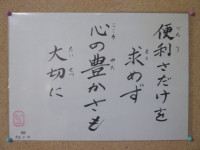 便利さだけを
求めず
心の豊かさも
大切に